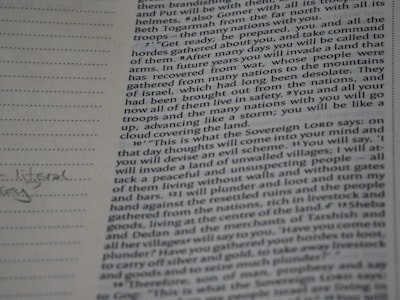 them brandishing
and Put will be with them,
helmets, 6also Gomer with all its
Beth Togarmah from the far north with all its
troops – the many nations with you.
7 "'Get ready, be prepared, you and all the
hordes gathered about you, and take command
of them. 8After many days you will be called to
arms. In future years you will invade a land that
has recovered from war, whose people were
gathered from many nations to the mountains
of Israel, which had long been desolate. They
had been brought out from the nations, and
now all of them live in safety. 9You and all your
troops and the many nations with you will go
up, advancing like a storm; you will be like a
cloud covering the land.
10 "'This is what the Sovereign LORD says: on
that day thoughts will come into your mind and
you will devise an evil scheme. 11You will say, 'I
will invade a land of unwalled villages; I will at-
tack a peaceful and unsuspecting people – all
of them living without walls and without gates
and bars. 12I will plunder and loot and turn my
hand against the resettled ruins and the people
gathered from the nations, rich in livestock and
goods, living at the centre of the land.' 13Sheba
and Dedan and the merchants of Tarshish and
all her villages will say to you, 'Have you come to
plunder? Have you gathered your hordes to loot,
to carry off silver and gold, to take away livestock
and goods and to seize much plunder?'"
14 "Therefore, son of man, prophesy and say
to Gog: "This is what the Sovereign LORD says:
my people Israel are living in